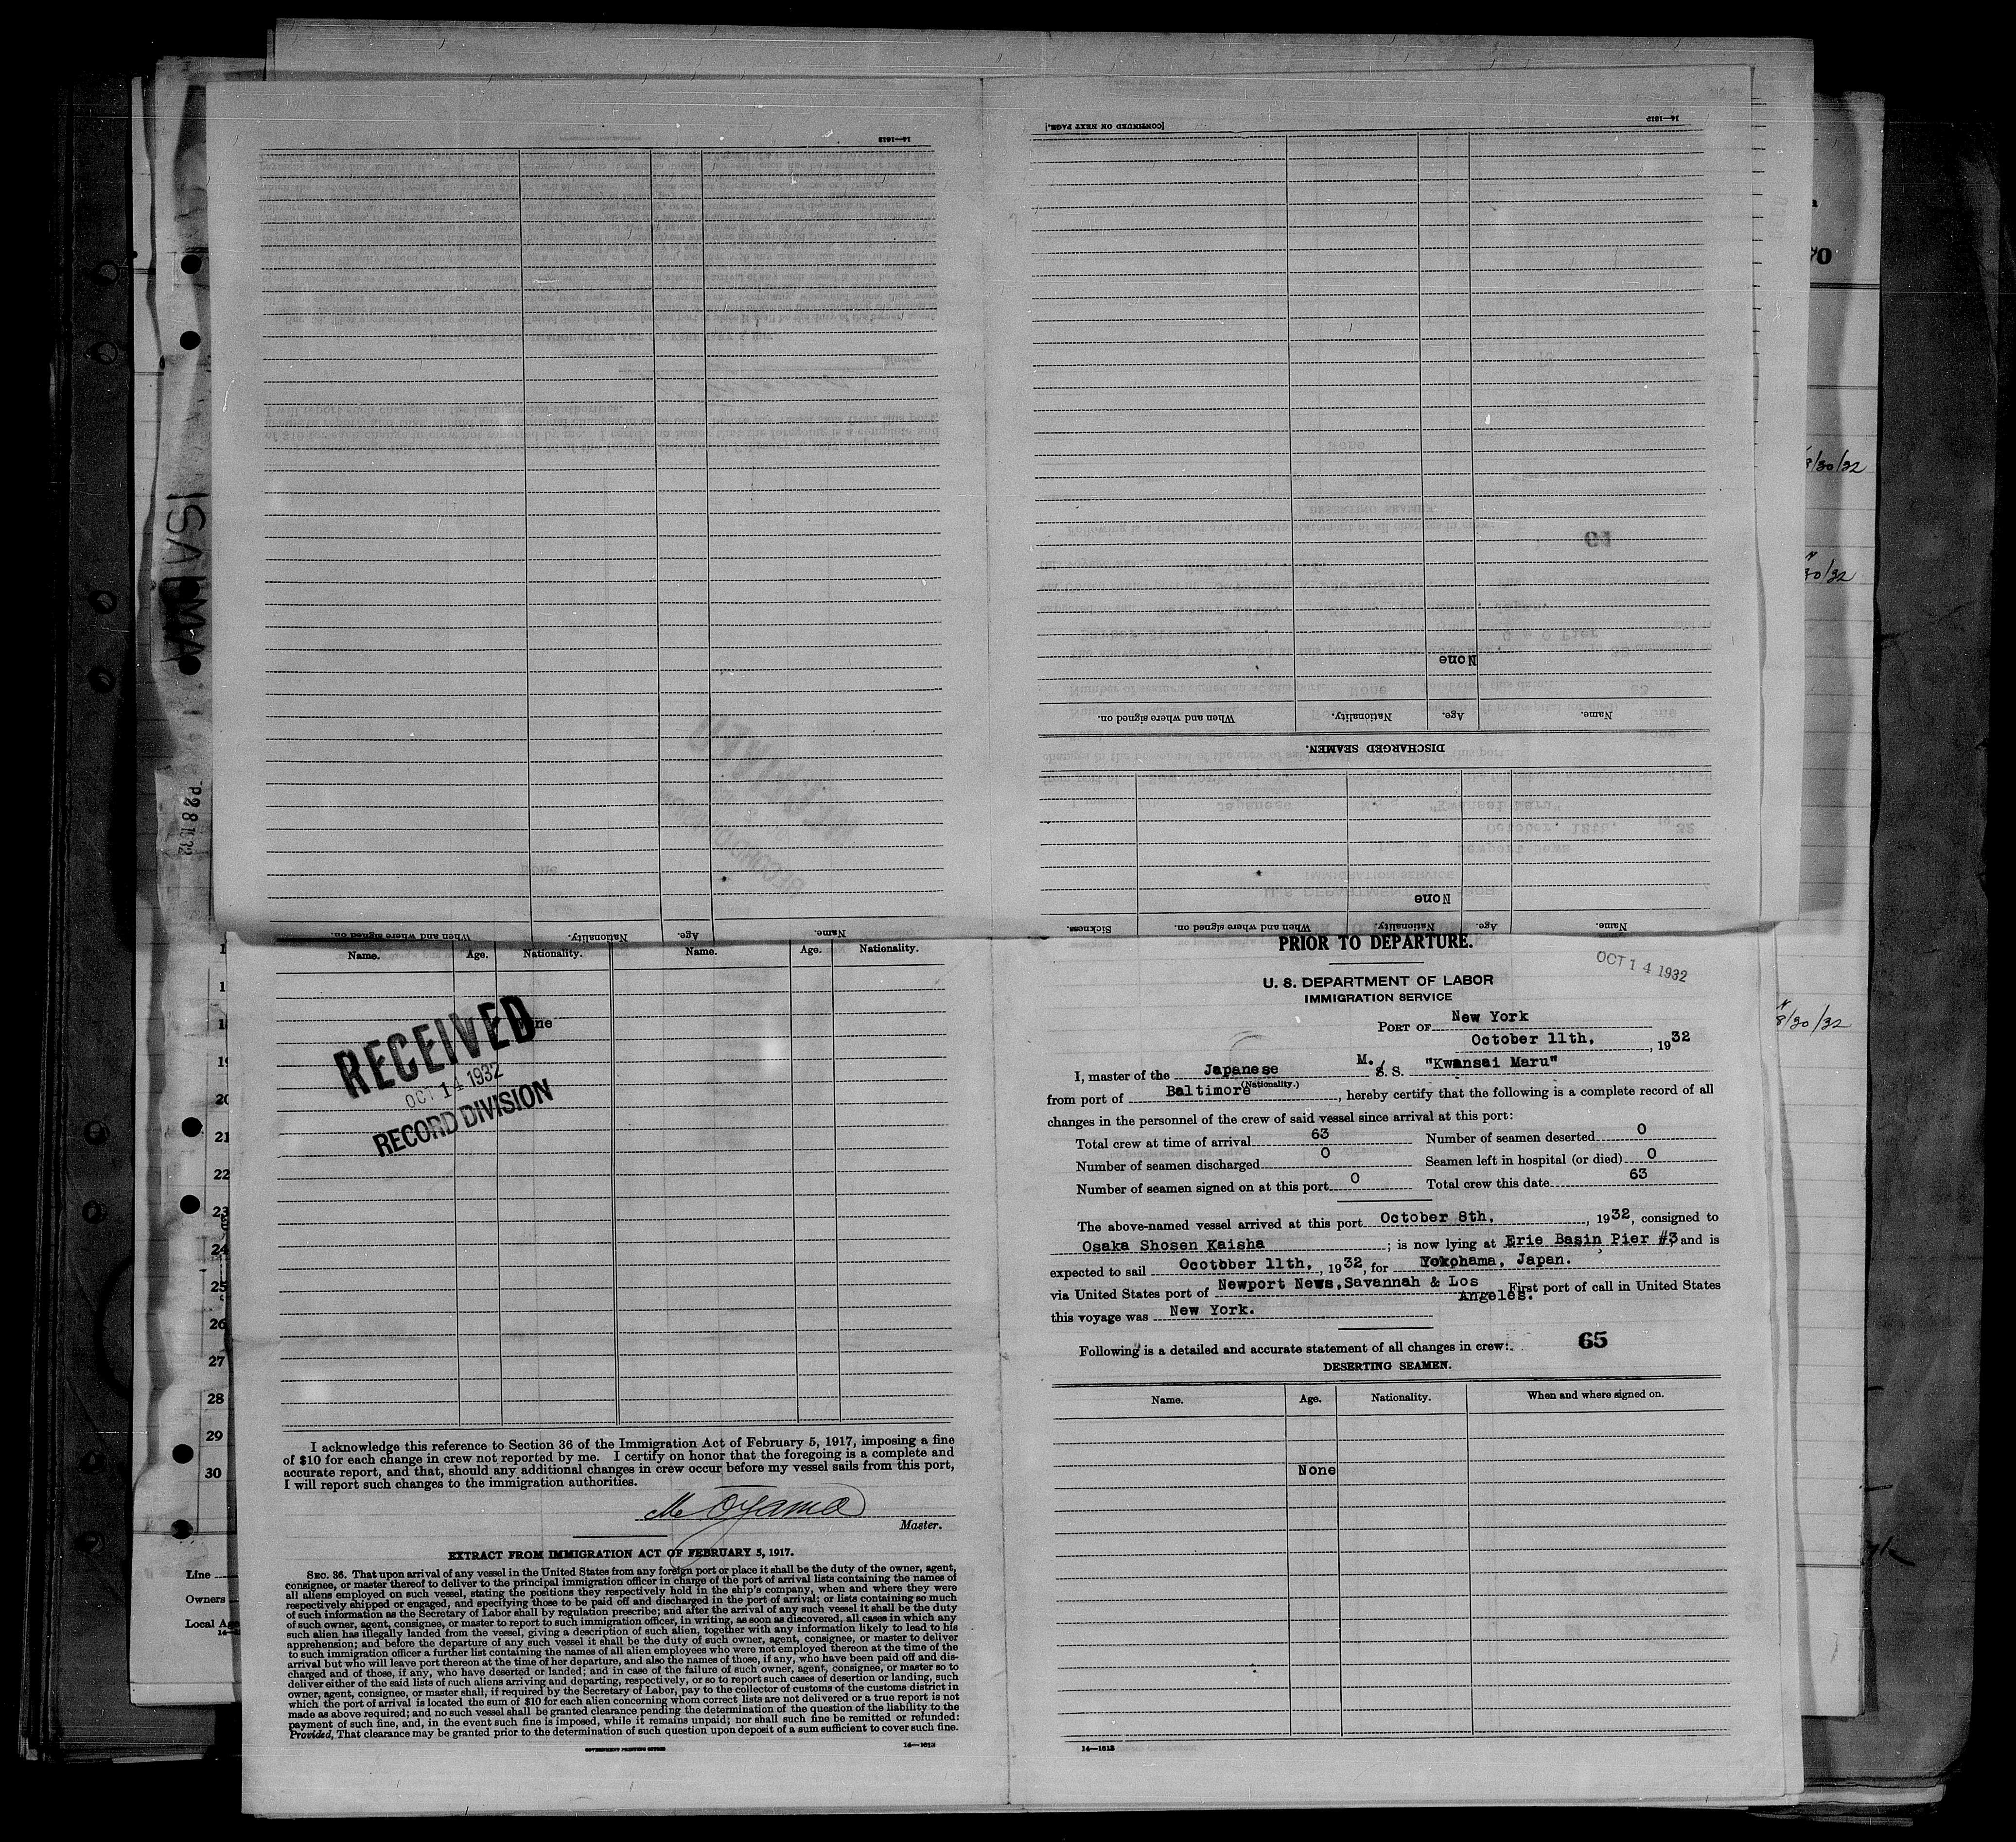 14—1613
[CONTINUED ON NEXT PAGE.]
14—1613
None
When and where signed on.
Nationality.
Age.
Name.
DISCHARGED SEAMEN.
None
Sickness.
When and where signed on.
Nationality.
Age.
Name.
When and where signed on.
Nationality.
Age.
Name.
Name.
Age.
Nationality.
Name.
Age.
Nationality.
RECEIVED
OCT 14 1932
RECORD DIVISION
I acknowledge this reference to Section 36 of the Immigration Act of February 5, 1917, imposing a fine
of $10 for each change in crew not reported by me. I certify on honor that the foregoing is a complete and
accurate report, and that, should any additional changes in crew occur before my vessel sails from this port,
I will report such changes to the immigration authorities.
Master.
EXTRACT FROM IMMIGRATION ACT OF FEBRUARY 5, 1917.
SEC. 36. That upon arrival of any vessel in the United States from any foreign port or place it shall be the duty of the owner, agent,
consignee, or master thereof to deliver to the principal immigration officer in charge of the port of arrival lists containing the names of
all aliens employed on such vessel, stating the positions they respectively hold in the ship's company, when and where they were
respectively shipped or engaged, and specifying those to be paid off and discharged in the port of arrival; or lists containing so much
of such information as the Secretary of Labor shall by regulation prescribe; and after the arrival of any such vessel it shall be the duty
of such owner, agent, consignee, or master to report to such immigration officer, in writing, as soon as discovered, all cases in which any
such alien has illegally landed from the vessel, giving a description of such alien, together with any information likely to lead to his
apprehension; and before the departure of any such vessel it shall be the duty of such owner, agent, consignee, or master to deliver
to such immigration officer a further list containing the names of all alien employees who were not employed thereon at the time of the
arrival but who will leave port thereon at the time of her departure, and also the names of those, if any, who have been paid off and dis-
charged and of those, if any, who have deserted or landed; and in case of the failure of such owner, agent, consignee, or master so to
deliver either of the said lists of such aliens arriving and departing, respectively, or so to report such cases of desertion or landing, such
owner, agent, consignee, or master shall, if required by the Secretary of Labor, pay to the collector of customs of the customs district in
which the port of arrival is located the sum of $10 for each alien concerning whom correct lists are not delivered or a true report is not
made as above required; and no such vessel shall be granted clearance pending the determination of the question of the liability to the
payment of such fine, and, in the event such fine is imposed, while it remains unpaid; nor shall such fine be remitted or refunded:
Provided, That clearance may be granted prior to the determination of such question upon deposit of a sum sufficient to cover such fine.
GOVERNMENT PRINTING OFFICE
14—1613
PRIOR TO DEPARTURE.
OCT 14 1932
U. S. DEPARTMENT OF LABOR
IMMIGRATION SERVICE
PORT OF New York
October 11th, , 1932
I, master of the Japanese M. S. S. "Kwansai Maru"
(Nationality.)
from port of Baltimore, hereby certify that the following is a complete record of all
changes in the personnel of the crew of said vessel since arrival at this port:
Total crew at time of arrival 63 Number of seamen deserted 0
Number of seamen discharged 0 Seamen left in hospital (or died) 0
Number of seamen signed on at this port 0 Total crew this date 63
The above-named vessel arrived at this port October 8th, , 1932, consigned to
Osaka Shosen Kaisha ; is now lying at Erie Basin Pier #3, and is
expected to sail Ocotbber 11th, , 1932, for Yokohama, Japan.
via United States port of Newport News, Savannah & Los Angeles. First port of call in United States
this voyage was New York.
Following is a detailed and accurate statement of all changes in crew:
65
DESERTING SEAMEN.
Name. Age. Nationality. When and where signed on.
None
14—1613
19
20
21
22
23
24
25
26
27
28
29
30
Line
Owners
8/30/32
30/32
8/30/32